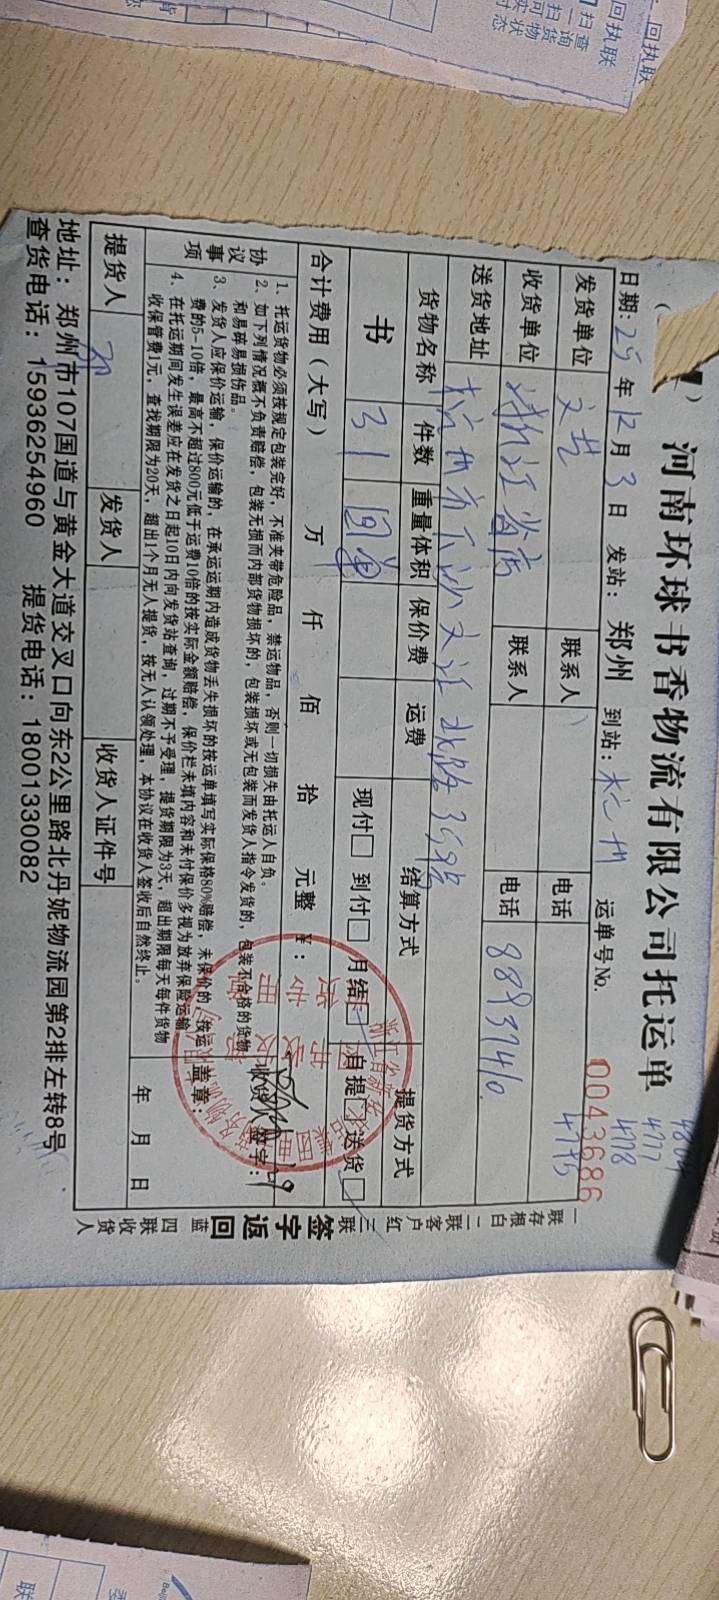 河南环球书香物流有限公司托运单
日期：25年12月3日 发站：郑州 到站：杭州 运单号No. 0043686
4777
4778
4775
发货单位 文艺 联系人 电话
收货单位 浙江省店 联系人 电话 88937410
送货地址 杭州市
货物名称 件数 重量体积 保价费 运费 结算方式 提货方式
书 31 回单 现付□ 到付□ 月结□ 自提□ 送货□
合计费用（大写） 万 仟 佰 拾 元整 ¥：
协议事项
1、托运货物必须按规定包装完好，不准夹带危险品，禁运物品，否则一切损失由托运人自负。
2、如下列情况概不负责赔偿，包装无损而内部货物损坏的，包装损坏或无包装而发货人指令发货的，包装不合格的货物
和易碎易损伤品。
3、发货人应保价运输，保价运输的，在承运运期内造成货物丢失损坏的按运单填写实际保格80%赔偿，未保价的，按运
费的5-10倍，最高不超过800元低于运费10倍的按实际金额赔偿，保价栏未填内容和未付保价多视为放弃保险运输
4、在托运期间发生误差应在发货之日起10日内向发货站查询，过期不予受理，提货期限为3天，超出期限每天每件货物
收保管费1元，查找期限为20天，超出1个月无人提货，按无人认领处理，本协议在收货人签收后自然终止。
收货人签字：
盖章：
提货人 发货人 收货人证件号 年 月 日
地址：郑州市107国道与黄金大道交叉口向东2公里路北丹妮物流园第2排左转8号
查货电话：15936254960 提货电话：18001330082
一联存根白 二联客户红 三联签字返回蓝 四联收货人
回执联
扫一扫
查询货物